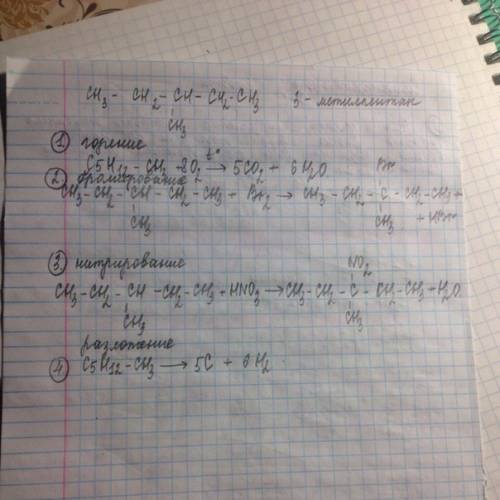 CH3 - CH2 - CH - CH2 - CH3   3 - метилпентан
CH3
1 горение
C5H12 - CH3 + 8O2 t° → 5CO2 + 6H2O
2 бромирование
Br
CH3 - CH2 - CH - CH2 - CH3 + Br2 → CH3 - CH2 - C - CH2 - CH3 +
CH3   CH3   + HBr
3 нитрирование
NO2
CH3 - CH2 - CH - CH2 - CH3 + HNO3 → CH3 - CH2 - C - CH2 - CH3 + H2O
CH3   CH3
разложение
4 C5H12 - CH3 → 5C + 6H2